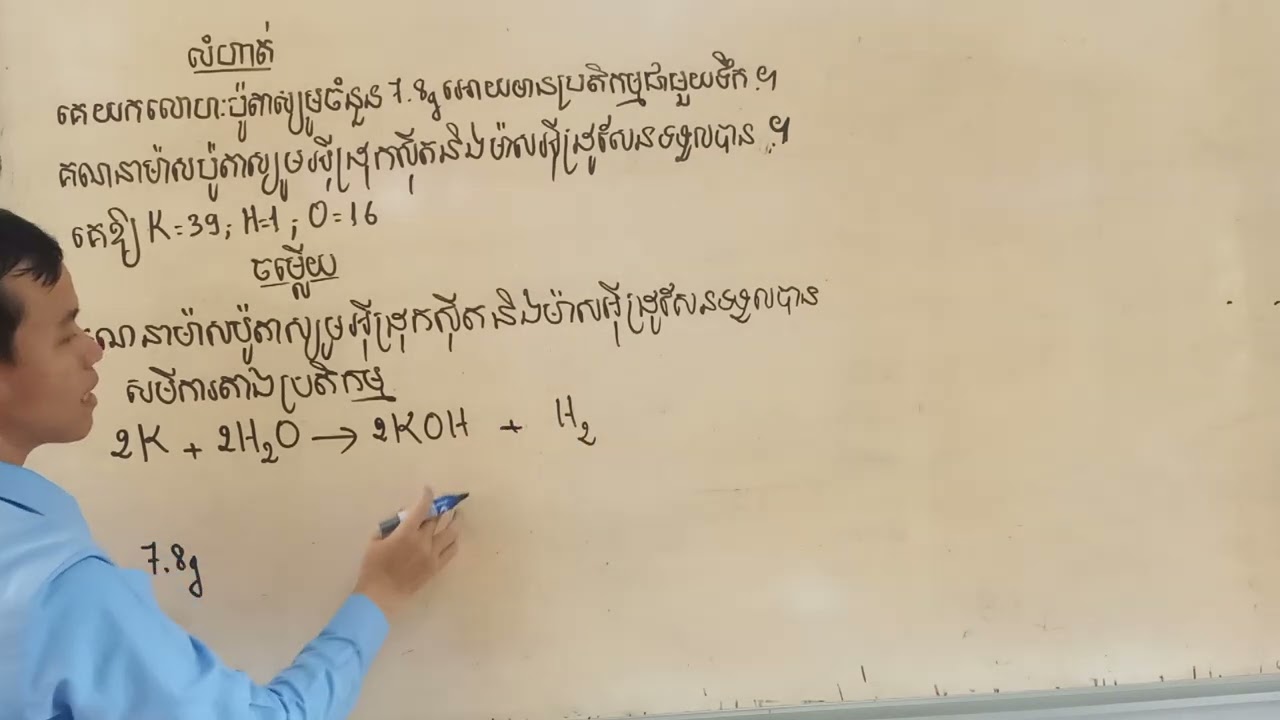 លំហាត់
គេយកលោហៈប៉ូតាស្យូមចំនួន 7.8g អោយមានប្រតិកម្មជាមួយទឹក ។
គណនាម៉ាសប៉ូតាស្យូមអ៊ីដ្រុកស៊ីតនិងម៉ាសអ៊ីដ្រូសែនទទួលបាន ។
គេឱ្យ K=39; H=1; O=16
ចម្លើយ
ណនាម៉ាសប៉ូតាស្យូមអ៊ីដ្រុកស៊ីតនិងម៉ាសអ៊ីដ្រូសែនទទួលបាន
សមីការតាងប្រតិកម្ម
2K + 2H₂O → 2KOH + H₂
7.8g